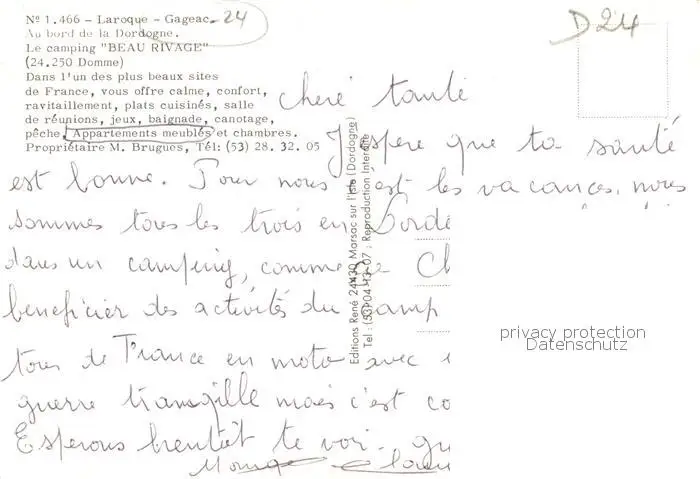 Nº 1.466 - Laroque - Gageac. 24
D24
Au bord de la Dordogne.
Le camping "BEAU RIVAGE"
(24.250 Domme)
Dans l'un des plus beaux sites
de France, vous offre calme, confort,
ravitaillement, plats cuisinés, salle
de réunions, jeux, baignade, canotage,
pêche. Appartements meublés et chambres.
Propriétaire M. Brugues, Tél: (53) 28. 32. 05
Editions René 24430 Marsac sur l'Isle (Dordogne)
Tel : (53) 04-13-07 : Reproduction Interdite
cheré tante
J'espere que ta santé
est bonne. Pour nous c'est les vacances, nous
sommes tous les trois en Dorde
dans un camping, comme Ch
beneficier des activités du camp
tour de France en moto avec
guerre tranqille mais c'est co
Esperons bientôt te voir.
privacy protection
Datenschutz